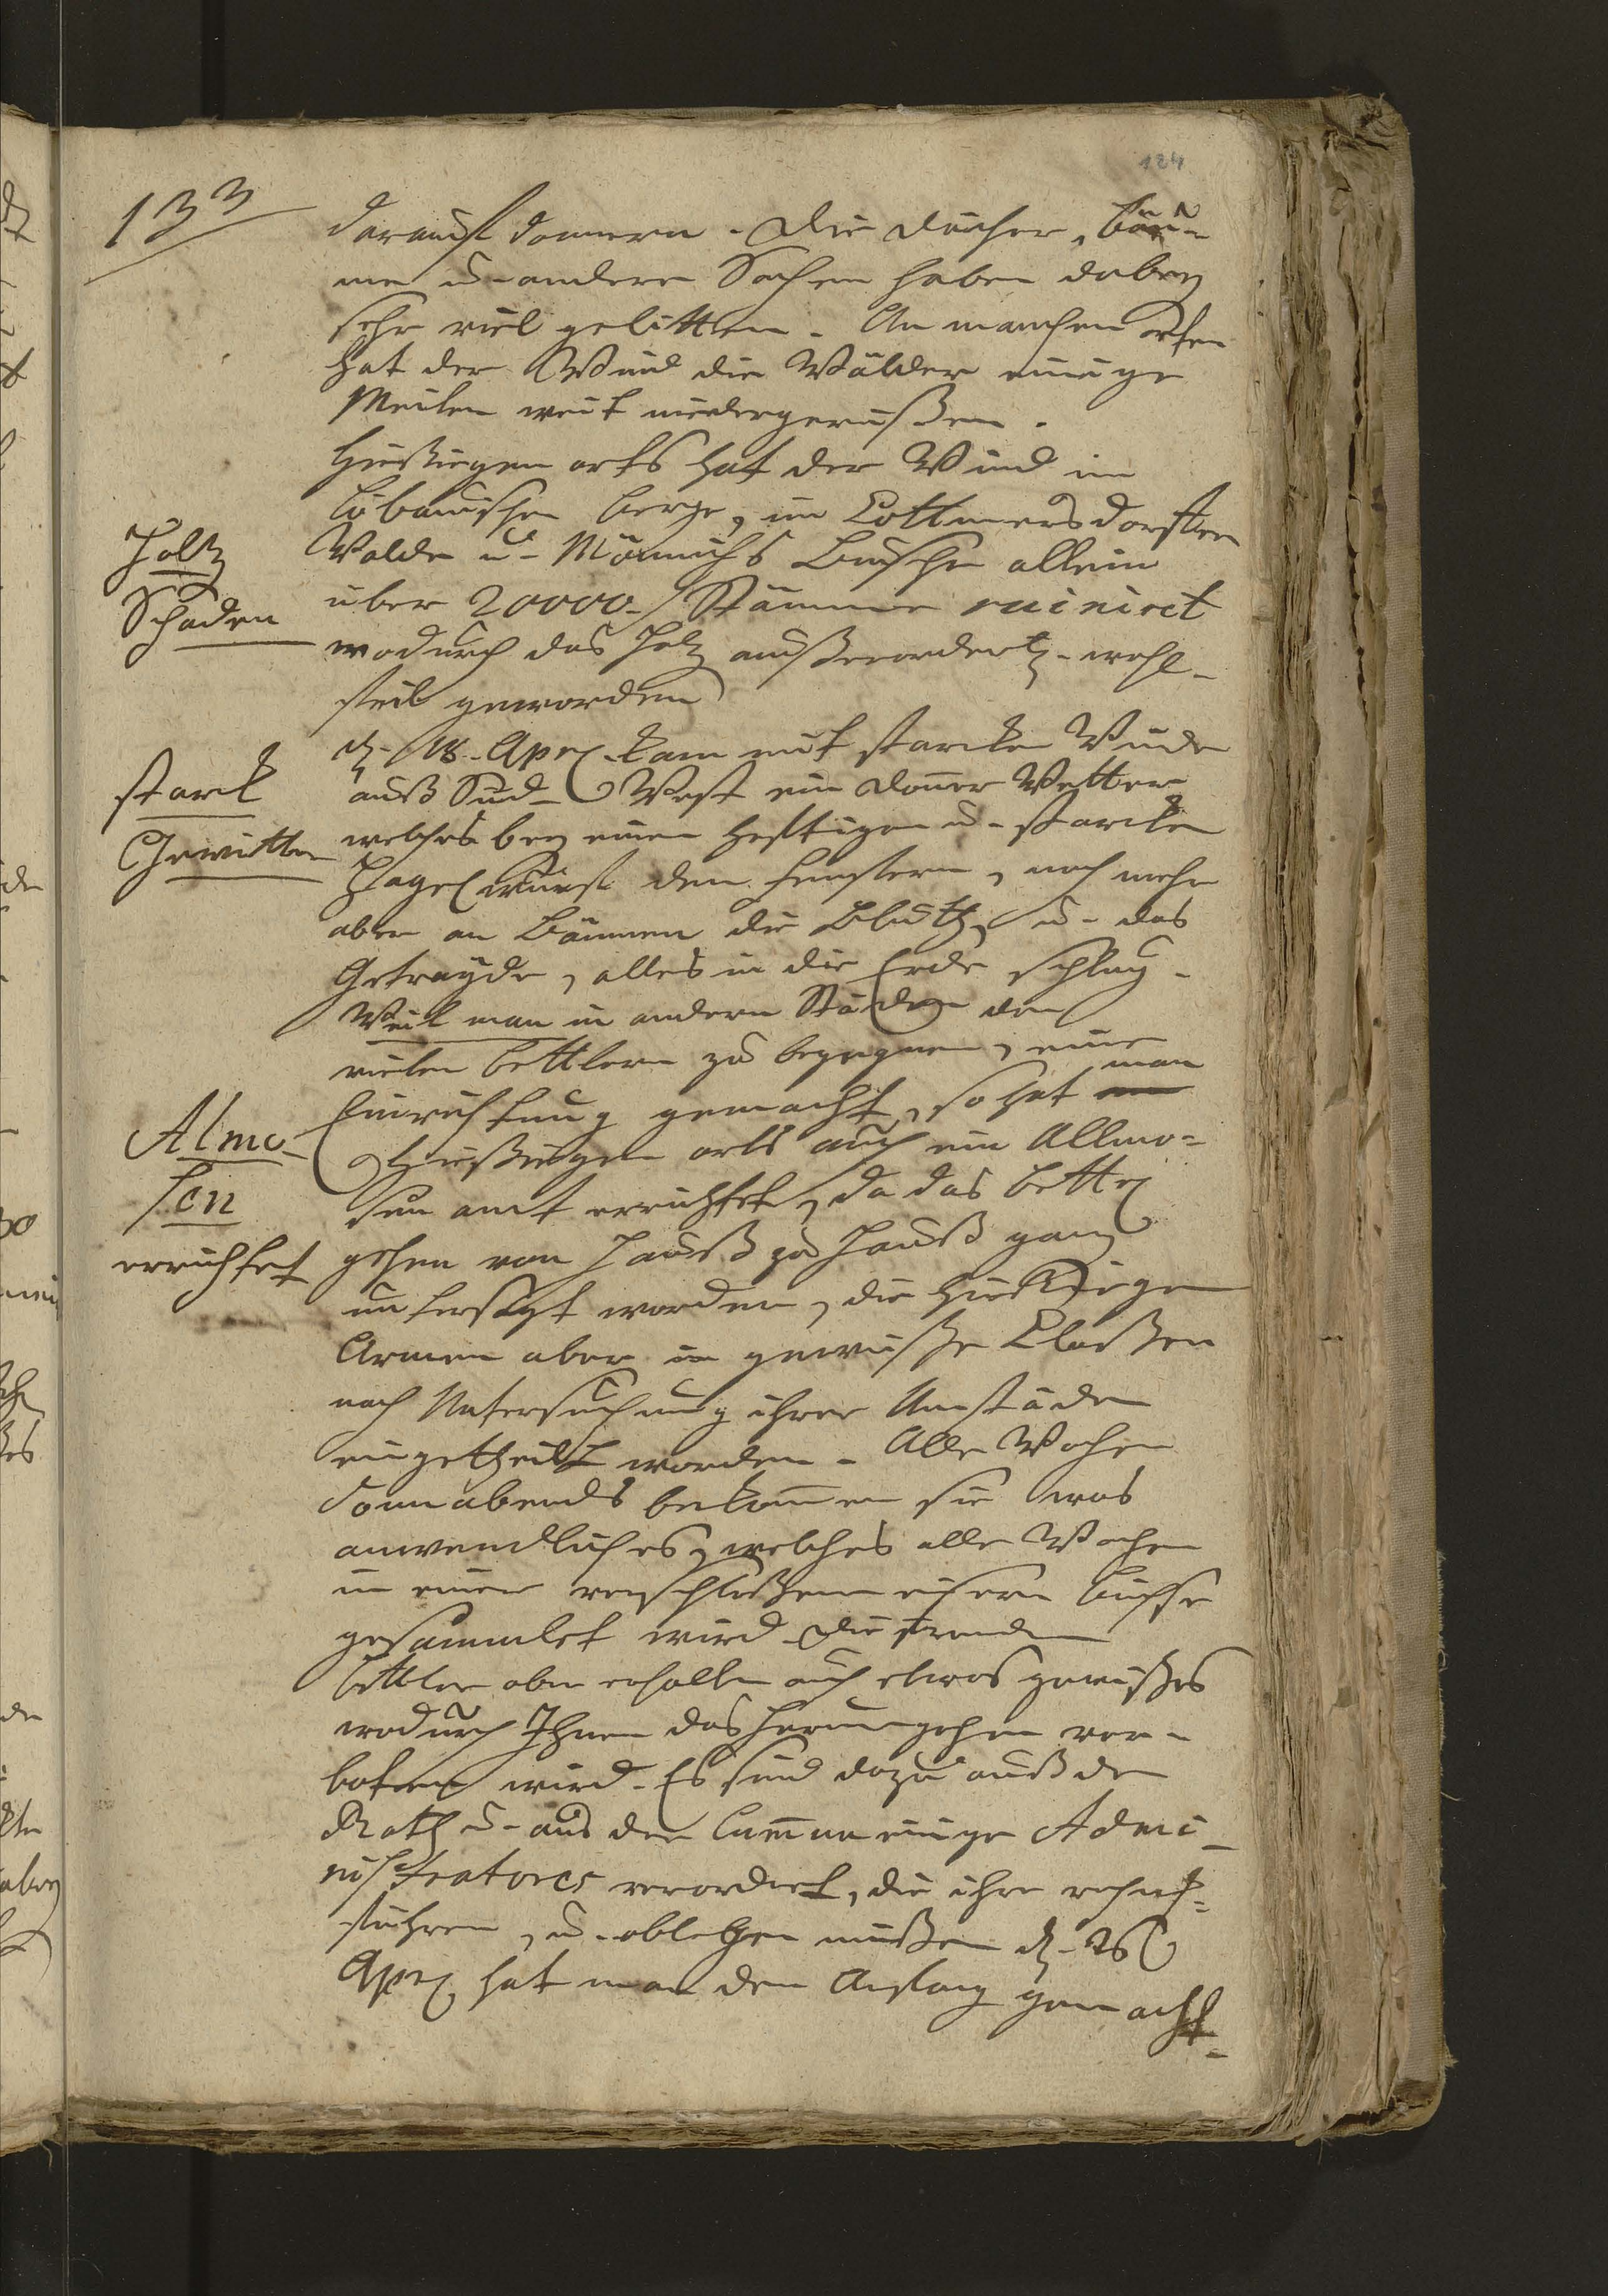 124
133
darauf donnern. Die Dächer, Bäu-
me u. andere Sachen haben dabey
sehr viel gelitten. An manchen orten
hat der Wind die Wälder einige
Meilen weit niedergerißen.
Hießigen orts hat der Wind im
Löbauischen Berge, im Cottmersdorffer
Holtz
Walde u. Mönnichs Busche allein
Schaden
über 20000 Stämme ruinirt
wodurch das Holz außerordentl. wohl-
feil geworden
d. 18. Apri. kam mit starken Winde
starck
auß Sud-West ein Donner Wetter
Gewitter
welches bey einen hefftigen u. starcken
Hagel wurf den Fenstern, noch mehr
aber an Bäumen die Blüth, u. das
Getrayde, alles in die Erde schlug.
Weil man in andern Städten den
vielen Bettlern zu begegnen, eine
Einrichtung gemacht, so hat man
Almo-
Hießigen orts auch ein Allmo-
sen
sen amt errichtet, da das Bettel
errichtet
gehen von Hauß zu Hauß ganz
untersagt worden, die Hießigen
Armen aber in gewiße Claßen
nach Untersuchung ihrer Umstände
eingetheilt worden. Alle Wochen
Sonnabends bekommen sie was
anwendliches, welches alle Wochen
in einer verschloßenen eisern Büchse
gesammlet wird. Die fremden
Bettler aber erhalten auch etwas gewißes
wodurch Ihnen das herumgehen ver-
boten wird. Es sind dazu auß den
Rath u. aus der Commun einige Admi-
nistratores verordnet, die ihre rechn.
führen, u. ablegen müßen d. 26
Apri. hat man den Anfang gemacht.